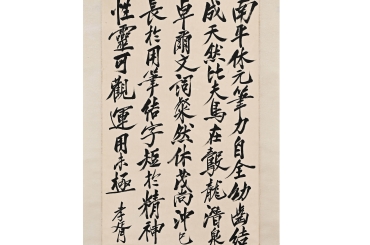 南平休元筆力自全幼齒結
成天然比夫鳥在鷇龍潛泉
卓爾文詞粲然休茂尚沖已
長於用筆結字短於精神
性靈可觀運用未極
李